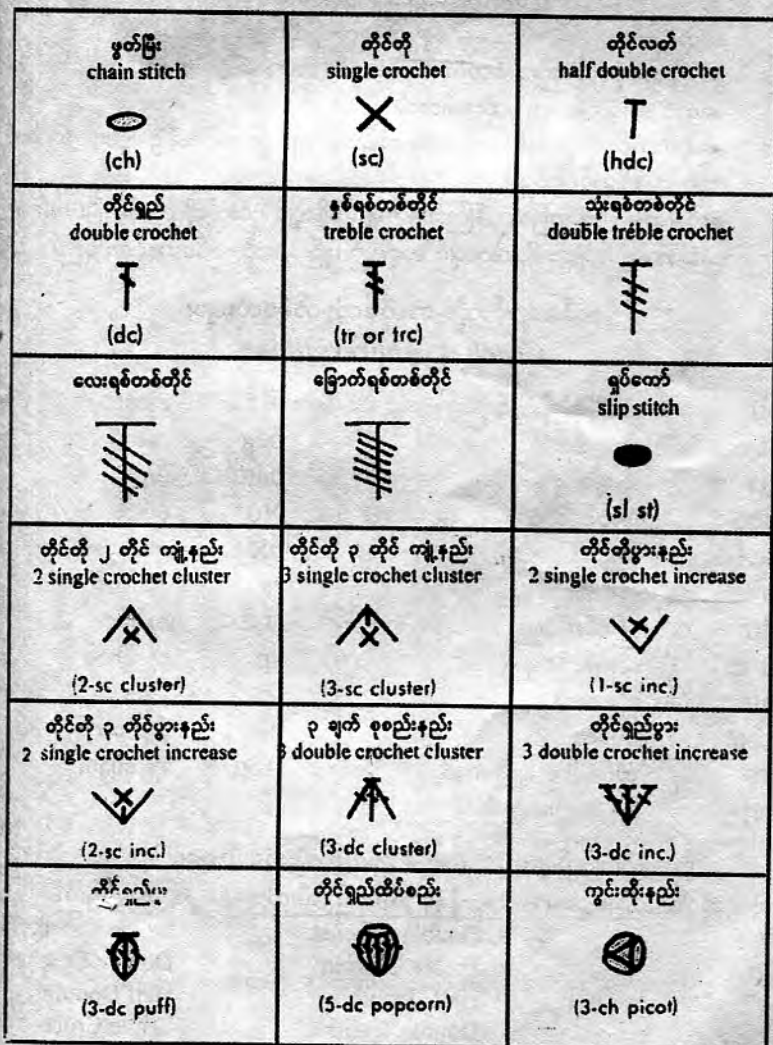 ဖွတ်မြီး
chain stitch
(ch)
တိုင်တို
single crochet
(sc)
တိုင်လတ်
half double crochet
(hdc)
တိုင်ရှည်
double crochet
(dc)
နှစ်ရစ်တစ်တိုင်
treble crochet
(tr or trc)
သုံးရစ်တစ်တိုင်
double tréble crochet
လေးရစ်တစ်တိုင်
ခြောက်ရစ်တစ်တိုင်
ရှပ်ကော်
slip stitch
(sl st)
တိုင်တို ၂ တိုင် ကျုံ့နည်း
2 single crochet cluster
(2-sc cluster)
တိုင်တို ၃ တိုင် ကျုံ့နည်း
3 single crochet cluster
(3-sc cluster)
တိုင်တိုပွားနည်း
2 single crochet increase
(1-sc inc.)
တိုင်တို ၃ တိုင်ပွားနည်း
2 single crochet increase
(2-sc inc.)
၃ ချက် စုစည်းနည်း
3 double crochet cluster
(3-dc cluster)
တိုင်ရှည်ပွား
3 double crochet increase
(3-dc inc.)
(3-dc puff)
တိုင်ရှည်ထိပ်စည်း
(5-dc popcorn)
ကွင်းထိုးနည်း
(3-ch picot)